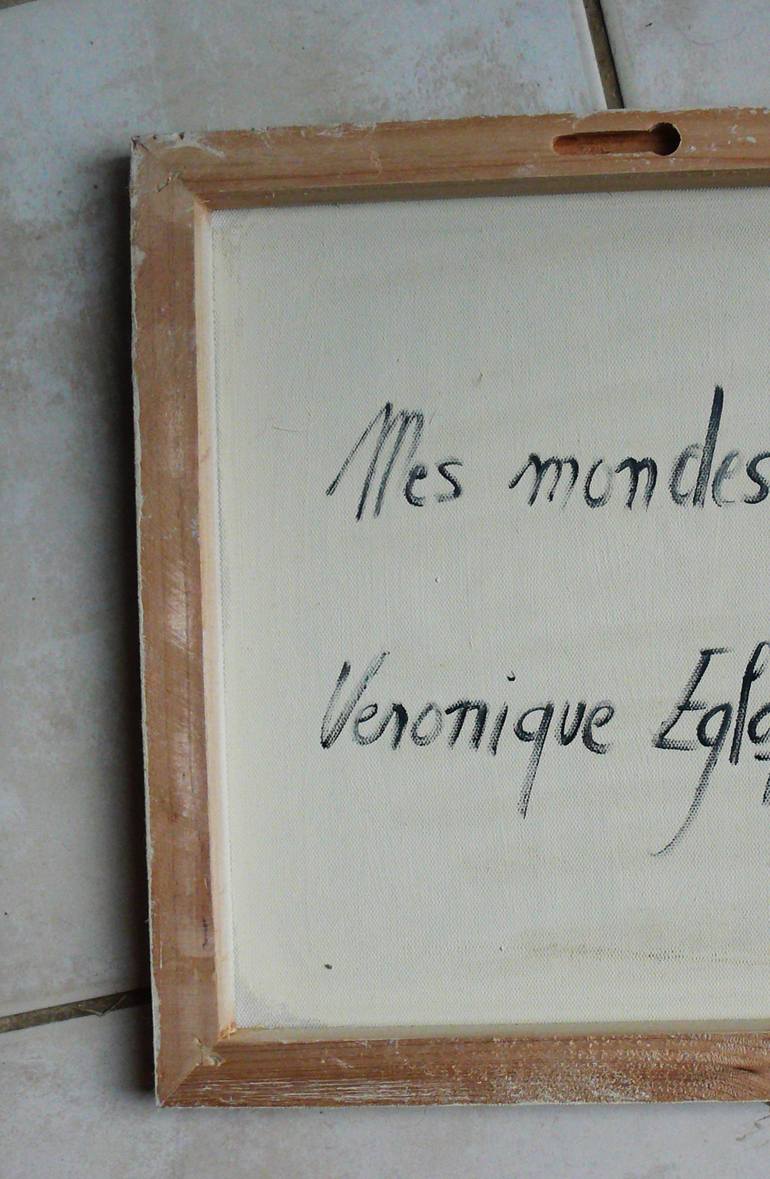 Mes mondes
Veronique